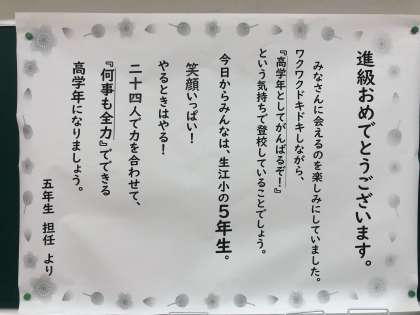 進級おめでとうございます。
みなさんに会えるのを楽しみにしていました。
ワクワクドキドキしながら、
『高学年としてがんばるぞ！』
という気持ちで登校していることでしょう。
今日からみんなは、生江小の５年生。
笑顔いっぱい！
やるときはやる！
二十四人で力を合わせて、
『何事も全力』でできる
高学年になりましょう。
五年生 担任 より